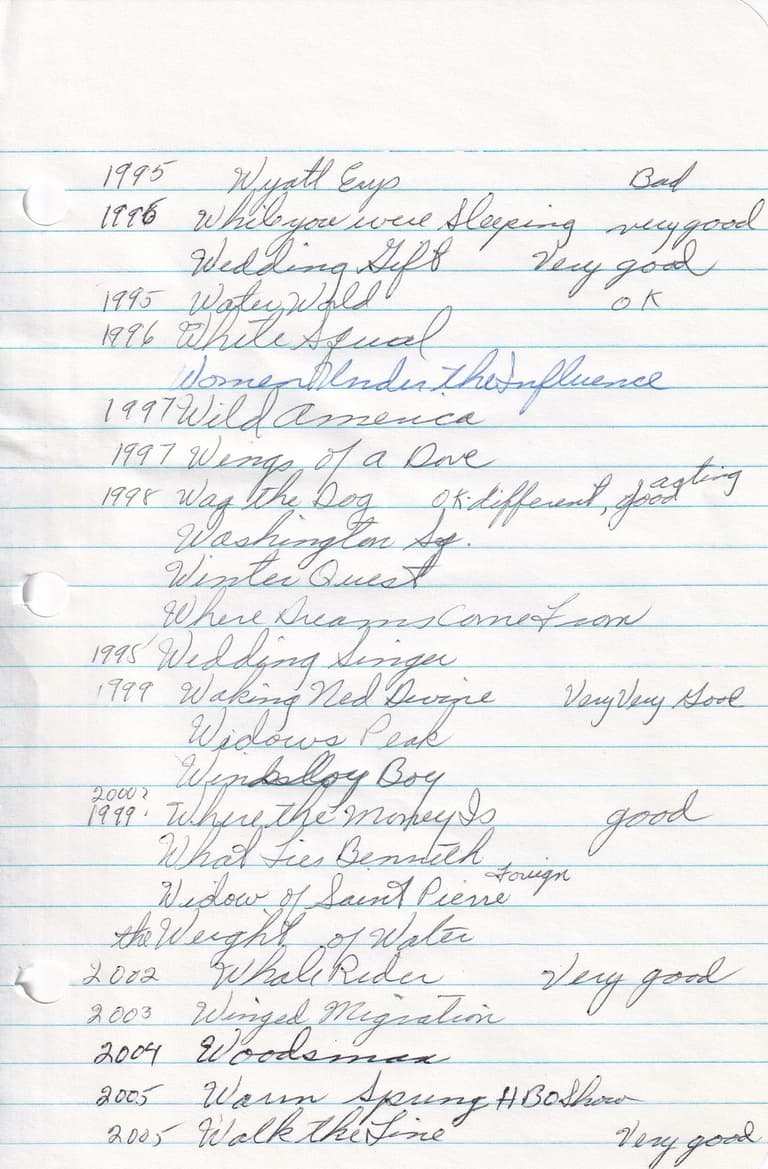 1995 Wyatt Erys Bad
1996 While you were Sleeping very good
Wedding Gift Very good
1995 Water World OK
1996 White Squal
Women Under the Influence
1997 Wild America
1997 Wings of a Dove
1998 Wag the Dog OK. different, good acting
Washington Sq.
Winter Quest
Where Dreams Come From
1998 Wedding Singer
1999 Waking Ned Devine Very Very Good
Widows Peak
Boy
2000?
1999. Where the Money Is good
What Lies Benneth
Widow of Saint Pierre Foreign
the Weight of Water
2002 Whale Rider Very good
2003 Winged Migration
2004 Woodsman
2005 Warm Spring HBO Show
2005 Walk the Line Very good